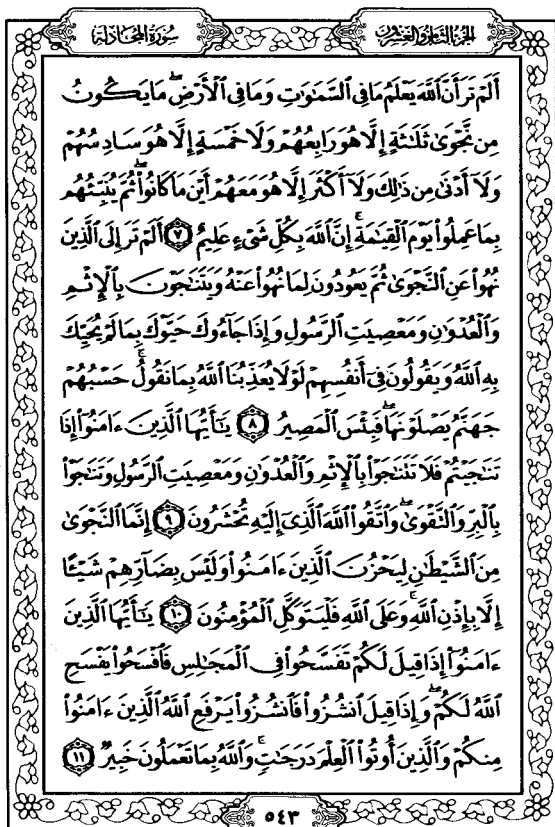 الجزء الثامن والعشرون
سورة المجادلة
أَلَمْ تَرَ أَنَّ ٱللَّهَ يَعْلَمُ مَا فِى ٱلسَّمَٰوَٰتِ وَمَا فِى ٱلْأَرْضِ ۖ مَا يَكُونُ
مِن نَّجْوَىٰ ثَلَٰثَةٍ إِلَّا هُوَ رَابِعُهُمْ وَلَا خَمْسَةٍ إِلَّا هُوَ سَادِسُهُمْ
وَلَآ أَدْنَىٰ مِن ذَٰلِكَ وَلَآ أَكْثَرَ إِلَّا هُوَ مَعَهُمْ أَيْنَ مَا كَانُوا۟ ۖ ثُمَّ يُنَبِّئُهُم
بِمَا عَمِلُوا۟ يَوْمَ ٱلْقِيَٰمَةِ ۚ إِنَّ ٱللَّهَ بِكُلِّ شَىْءٍ عَلِيمٌ ٧ أَلَمْ تَرَ إِلَى ٱلَّذِينَ
نُهُوا۟ عَنِ ٱلنَّجْوَىٰ ثُمَّ يَعُودُونَ لِمَا نُهُوا۟ عَنْهُ وَيَتَنَٰجَوْنَ بِٱلْإِثْمِ
وَٱلْعُدْوَٰنِ وَمَعْصِيَتِ ٱلرَّسُولِ وَإِذَا جَآءُوكَ حَيَّوْكَ بِمَا لَمْ يُحَيِّكَ
بِهِ ٱللَّهُ وَيَقُولُونَ فِىٓ أَنفُسِهِمْ لَوْلَا يُعَذِّبُنَا ٱللَّهُ بِمَا نَقُولُ ۚ حَسْبُهُمْ
جَهَنَّمُ يَصْلَوْنَهَا ۖ فَبِئْسَ ٱلْمَصِيرُ ٨ يَٰٓأَيُّهَا ٱلَّذِينَ ءَامَنُوٓا۟ إِذَا
تَنَٰجَيْتُمْ فَلَا تَتَنَٰجَوْا۟ بِٱلْإِثْمِ وَٱلْعُدْوَٰنِ وَمَعْصِيَتِ ٱلرَّسُولِ وَتَنَٰجَوْا۟
بِٱلْبِرِّ وَٱلتَّقْوَىٰ ۖ وَٱتَّقُوا۟ ٱللَّهَ ٱلَّذِىٓ إِلَيْهِ تُحْشَرُونَ ٩ إِنَّمَا ٱلنَّجْوَىٰ
مِنَ ٱلشَّيْطَٰنِ لِيَحْزُنَ ٱلَّذِينَ ءَامَنُوا۟ وَلَيْسَ بِضَآرِّهِمْ شَيْـًٔا
إِلَّا بِإِذْنِ ٱللَّهِ ۚ وَعَلَى ٱللَّهِ فَلْيَتَوَكَّلِ ٱلْمُؤْمِنُونَ ١٠ يَٰٓأَيُّهَا ٱلَّذِينَ
ءَامَنُوٓا۟ إِذَا قِيلَ لَكُمْ تَفَسَّحُوا۟ فِى ٱلْمَجَٰلِسِ فَٱفْسَحُوا۟ يَفْسَحِ
ٱللَّهُ لَكُمْ ۖ وَإِذَا قِيلَ ٱنشُزُوا۟ فَٱنشُزُوا۟ يَرْفَعِ ٱللَّهُ ٱلَّذِينَ ءَامَنُوا۟
مِنكُمْ وَٱلَّذِينَ أُوتُوا۟ ٱلْعِلْمَ دَرَجَٰتٍ ۚ وَٱللَّهُ بِمَا تَعْمَلُونَ خَبِيرٌ ١١
٥٤٣